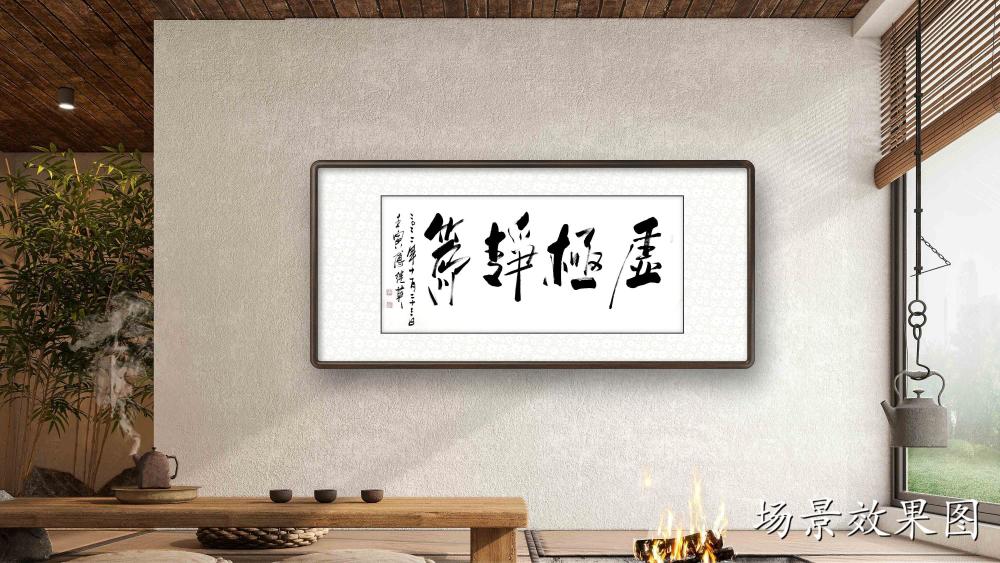 虛極靜篤
二〇二二年十一月二十三日
壬寅
场景效果图